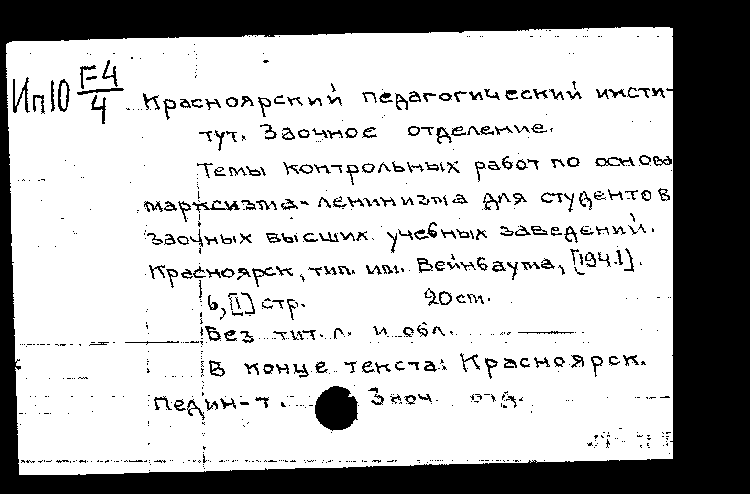 Ип10 Е-4/4
Красноярский педагогический инсти-
тут. Заочное отделение.
Темы контрольных работ по основа
марксизма-ленинизма для студентов
заочных высших учебных заведений.
Красноярск, тип. им. Вейнбаума, [1941].
6, [1] стр. 20 cm.
Без тит. л. и обл.
В конце текста: Красноярск.
Педин-т. Заоч. отд.